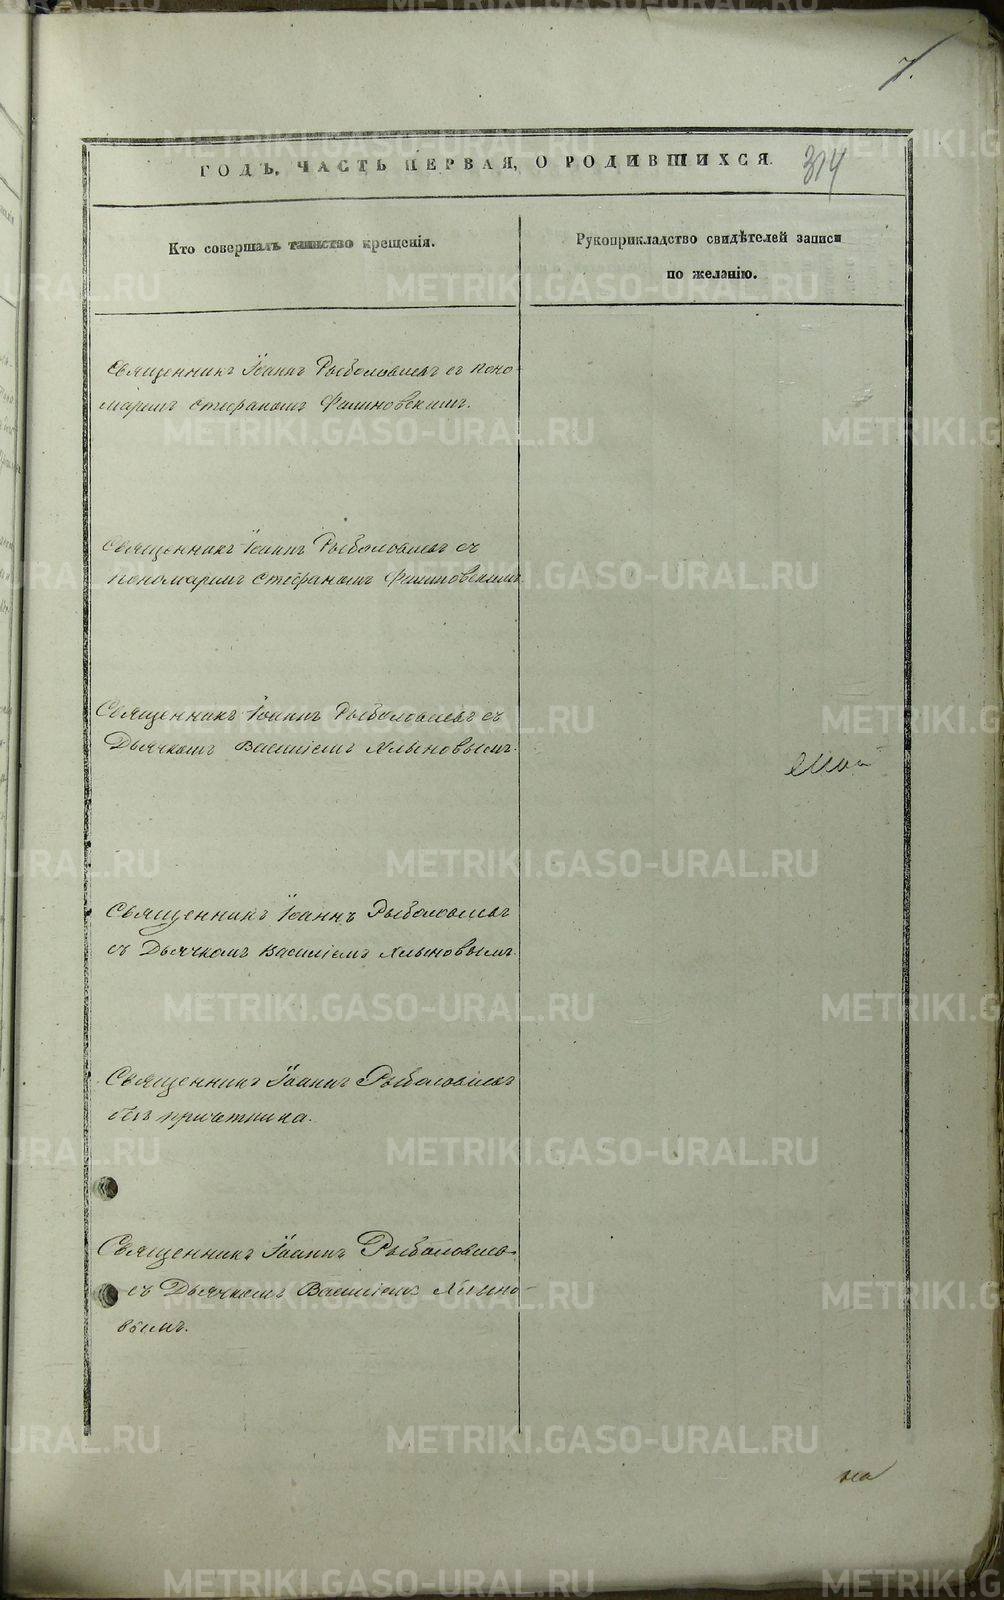 7.
ГОДЪ, ЧАСТЬ ПЕРВАЯ, О РОДИВШИХСЯ.
314
Кто совершалъ таинство крещенія.
Рукоприкладство свидѣтелей записи
по желанію.
Священникъ Іоаннъ Рыболовлевъ съ поно-
маремъ Стефаномъ
Священникъ Іоаннъ Рыболовлевъ съ
пономаремъ Стефаномъ
Священникъ Іоаннъ Рыболовлевъ съ
Дьячкомъ Василіемъ Хлыновымъ.
Священникъ Іоаннъ Рыболовлевъ
съ Дьячкомъ Василіемъ Хлыновымъ.
Священникъ Іоаннъ Рыболовлевъ
безъ причетника.
Священникъ Іоаннъ Рыболовлевъ
съ Дьячкомъ Василіемъ Хлыно-
вымъ.
на
METRIKI.GASO-URAL.RU